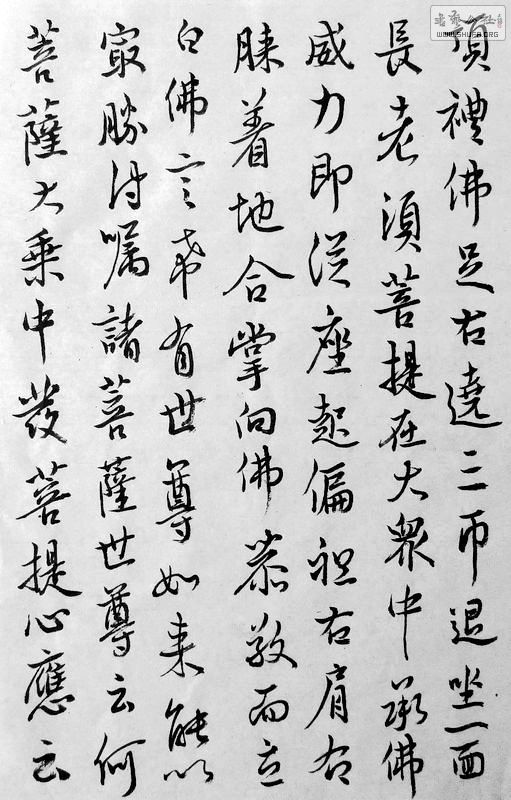 頂禮佛足右遶三帀退坐一面
長老須菩提在大眾中承佛
威力即從座起偏袒右肩右
膝着地合掌向佛恭敬而立
白佛言希有世尊如来能以
㝡勝付嘱諸菩薩世尊云何
菩薩大乗中發菩提心應云
WWW.SHUFA.ORG